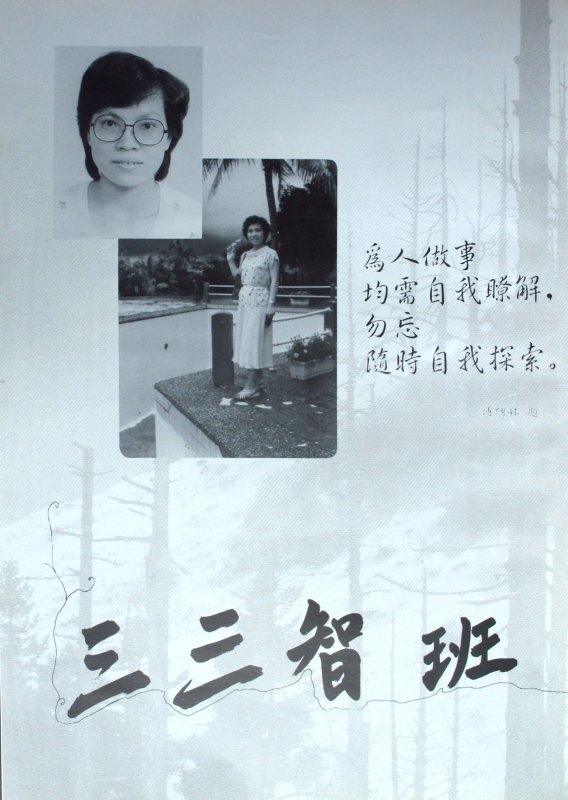 為人做事
均需自我瞭解，
勿忘
隨時自我探索。
三三智班